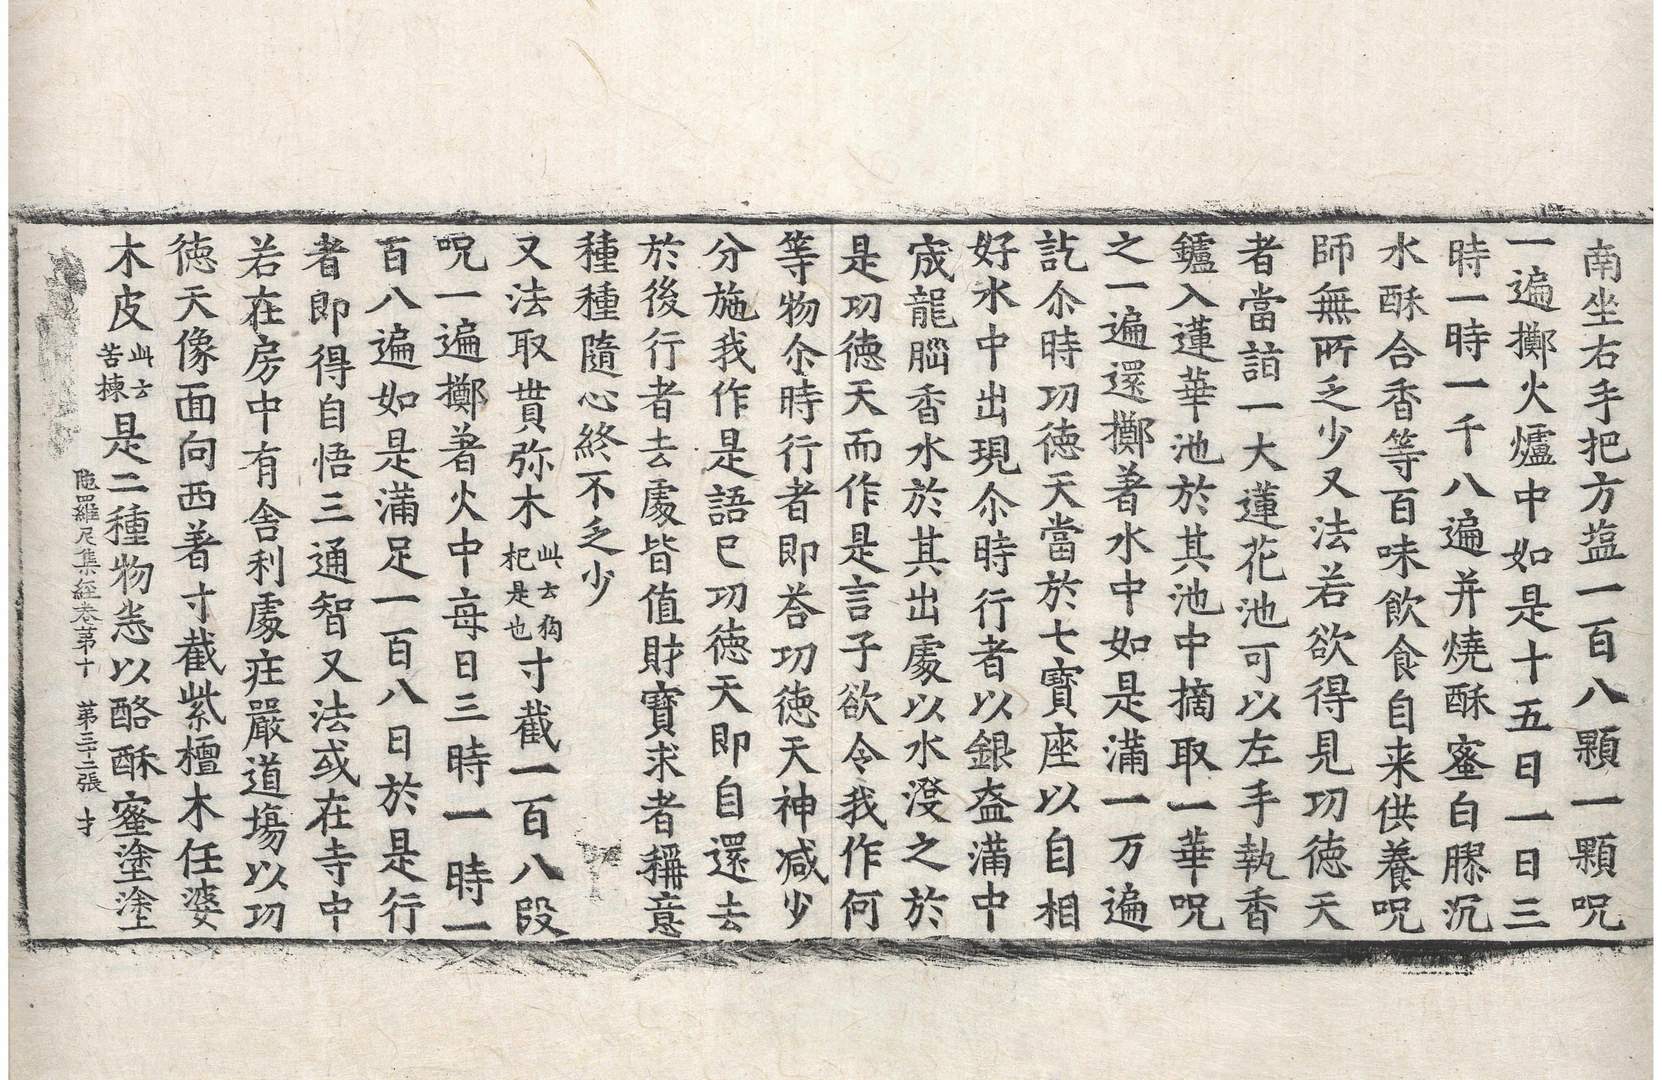 南坐右手把方䀋一百八顆一顆呪
一遍擲火爐中如是十五日一日三
時一時一千八遍并燒酥蜜白膠沉
水酥合香等百味飲食自来供養呪
師無所乏少又法若欲得見功徳天
者當詣一大蓮花池可以左手執香
鑪入蓮華池於其池中摘取一華呪
之一遍還擲著水中如是滿一万遍
訖尒時功徳天當於七寶座以自相
好水中出現尒時行者以銀盔滿中
成龍腦香水於其出處以水澄之於
是功徳天而作是言子欲令我作何
等物尒時行者即荅功徳天神减少
分施我作是語已功徳天即自還去
於後行者去處皆值財寶求者稱意
種種隨心終不乏少
又法取貰弥木此云狗杞是也寸截一百八段
呪一遍擲著火中每日三時一時一
百八遍如是滿足一百八日於是行
者即得自悟三通智又法或在寺中
若在房中有舍利處庄嚴道場以功
徳天像面向西著寸截紫檀木任婆
木皮此云苦棟是二種物恙以酪酥蜜塗塗
陁羅尼集経巻苐十 苐三十二張 才